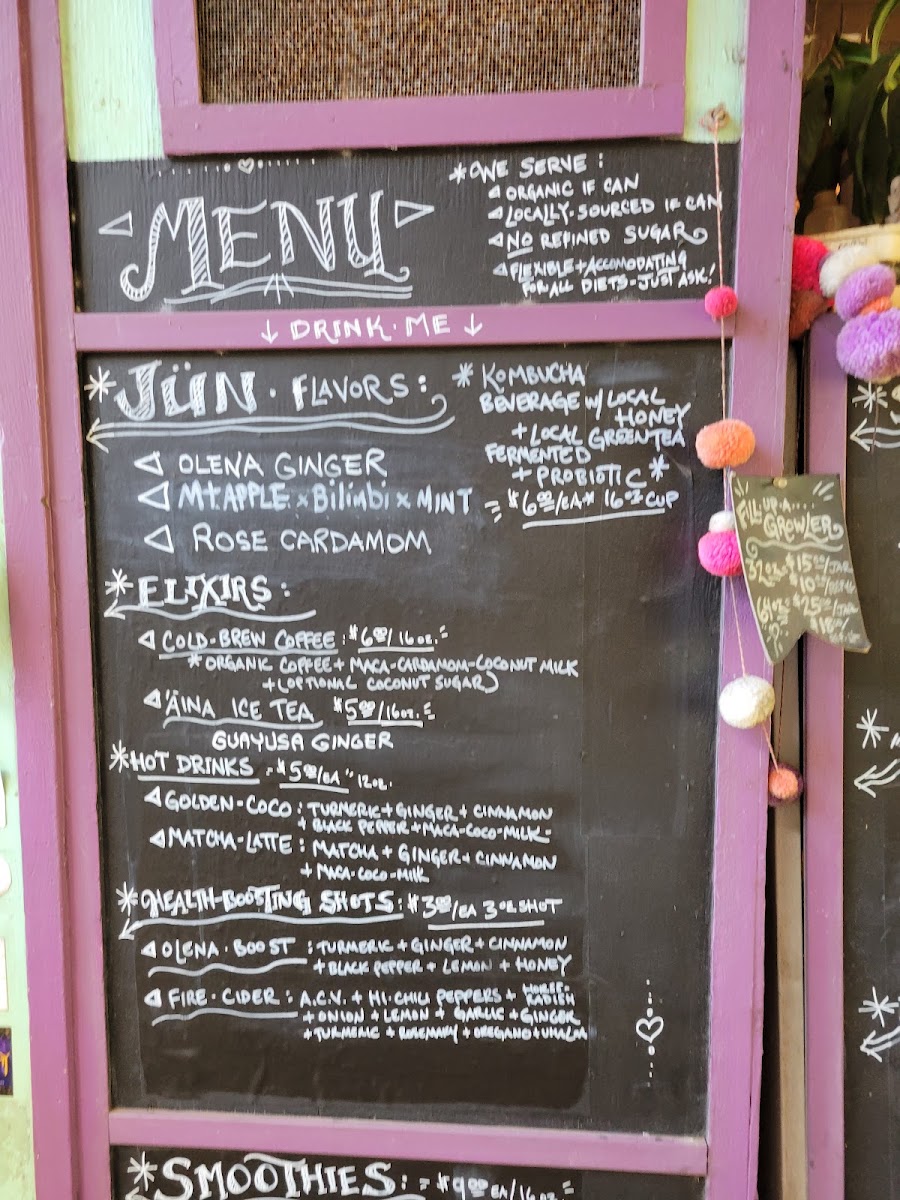 MENU
*WE SERVE:
ORGANIC IF CAN
LOCALLY-SOURCED IF CAN
NO REFINED SUGAR
FLEXIBLE + ACCOMODATING
FOR ALL DIETS-JUST ASK!
↓ DRINK·ME ↓
*JÜN·FLAVORS:
*KOMBUCHA
BEVERAGE W/ LOCAL
HONEY
+ LOCAL GREEN TEA
FERMENTED
+ PROBIOTIC*
= $6.00/EA* 16oz CUP
OLENA GINGER
Mt. APPLE x Bilimbi x MINT
ROSE CARDAMOM
*ELIXIRS:
COLD-BREW COFFEE: $6.00/16oz.
*ORGANIC COFFEE + MACA-CARDAMOM-COCONUT MILK
+ (OPTIONAL COCONUT SUGAR)
'ÄINA ICE TEA $5.00/16oz.
GUAYUSA GINGER
*HOT DRINKS = $5.00/EA " 12oz.
GOLDEN-COCO: TURMERIC + GINGER + CINNAMON
+ BLACK PEPPER + MACA-COCO-MILK-
MATCHA-LATTE: MATCHA + GINGER + CINNAMON
+ MACA-COCO-MILK
*HEALTH-BOOSTING SHOTS: $3.00/EA 3oz SHOT
OLENA·BOOST: TURMERIC + GINGER + CINNAMON
+ BLACK PEPPER + LEMON + HONEY
FIRE·CIDER: A.C.V. + HI.CHILI PEPPERS + HORSE-
RADISH
+ ONION + LEMON + GARLIC + GINGER
+ TURMERIC + ROSEMARY + OREGANO +
*SMOOTHIES: = $9.00 EA/16oz =
FILL-UP-A....
GROWLER
32oz. $15.00/JAR
$10.00/
64oz $25.00/JAR